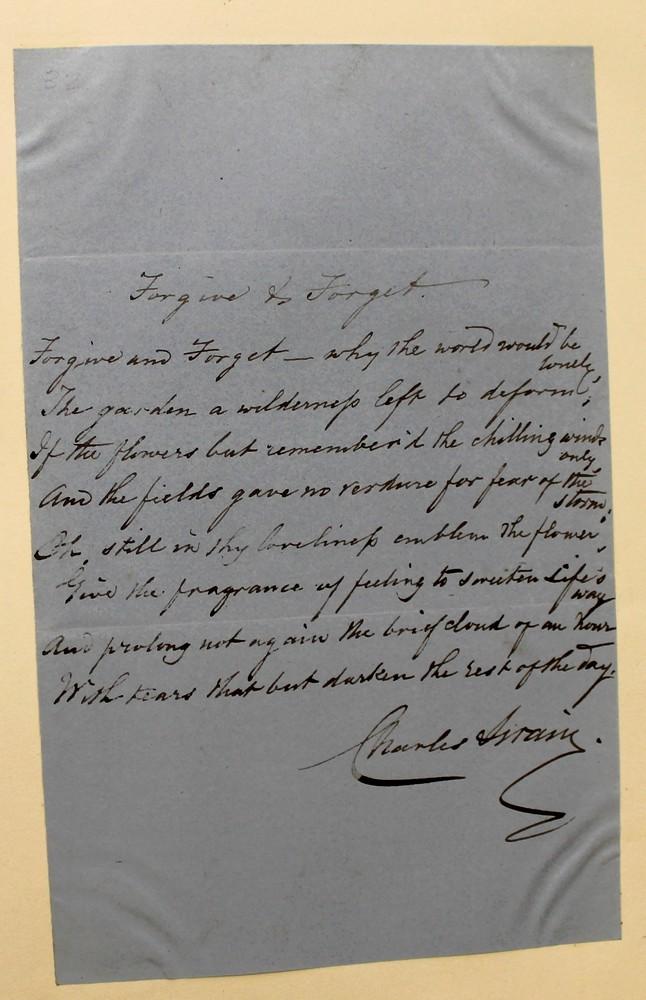 Forgive & Forget.
Forgive and Forget — why the world would be
lonely,
The garden a wilderness left to deform;
If the flowers but remember'd the chilling winds
only,
And the fields gave no verdure for fear of the
storm.
Oh, still in thy loveliness emblem the flower,
Give the fragrance of feeling to sweeten Life's
way
And prolong not again the brief cloud of an hour
With tears that but darken the rest of the day.
Charles Swain.